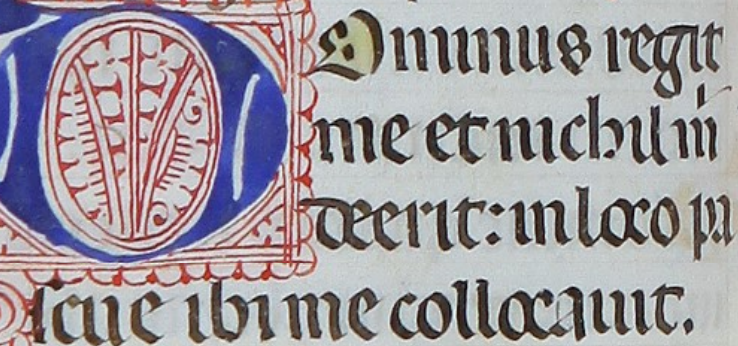 DOminus regit
me et nichil mⁱ
deerit: in loco pa
scue ibi me collocauit.